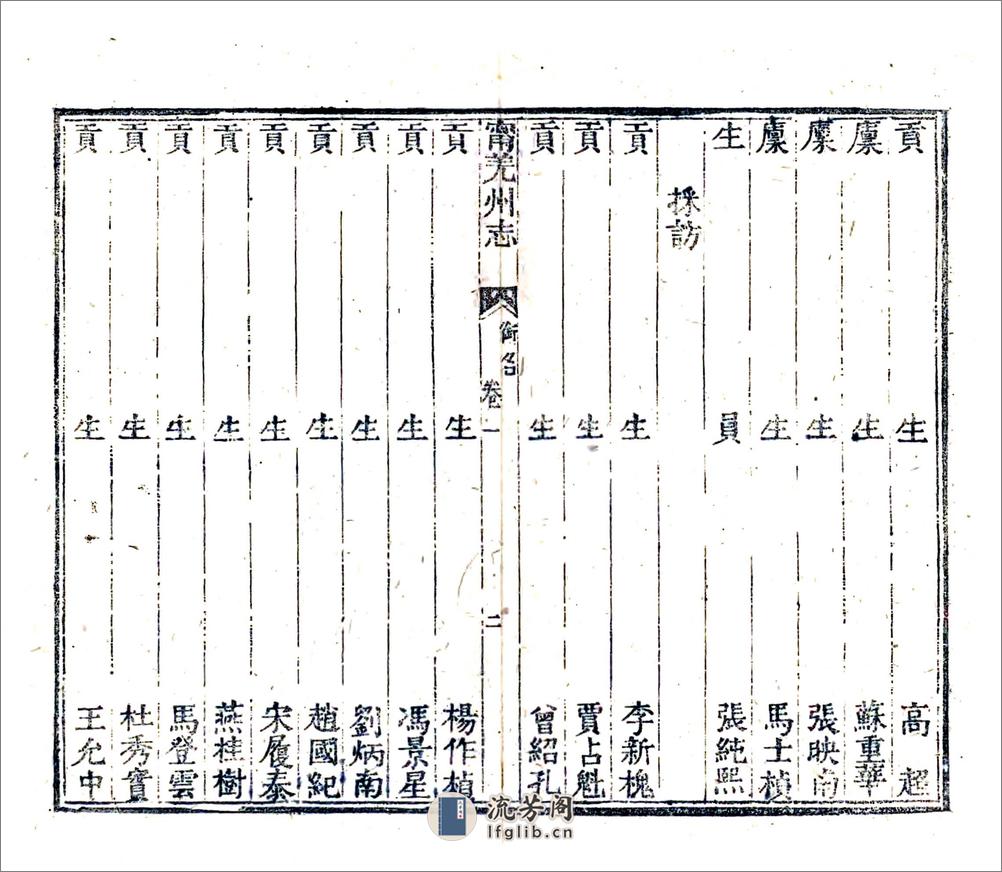 貢生高超
廩生蘇重華
廩生張映南
廩生馬士楨
生員張純熙
採訪
貢生李新槐
貢生賈占魁
貢生曾紹孔
甯羌州志 卷一 銜名 二
貢生楊作楨
貢生馮景星
貢生劉炳南
貢生趙國紀
貢生宋履泰
貢生燕桂樹
貢生馬登雲
貢生杜秀實
貢生王允中
流芳阁
lfglib.cn